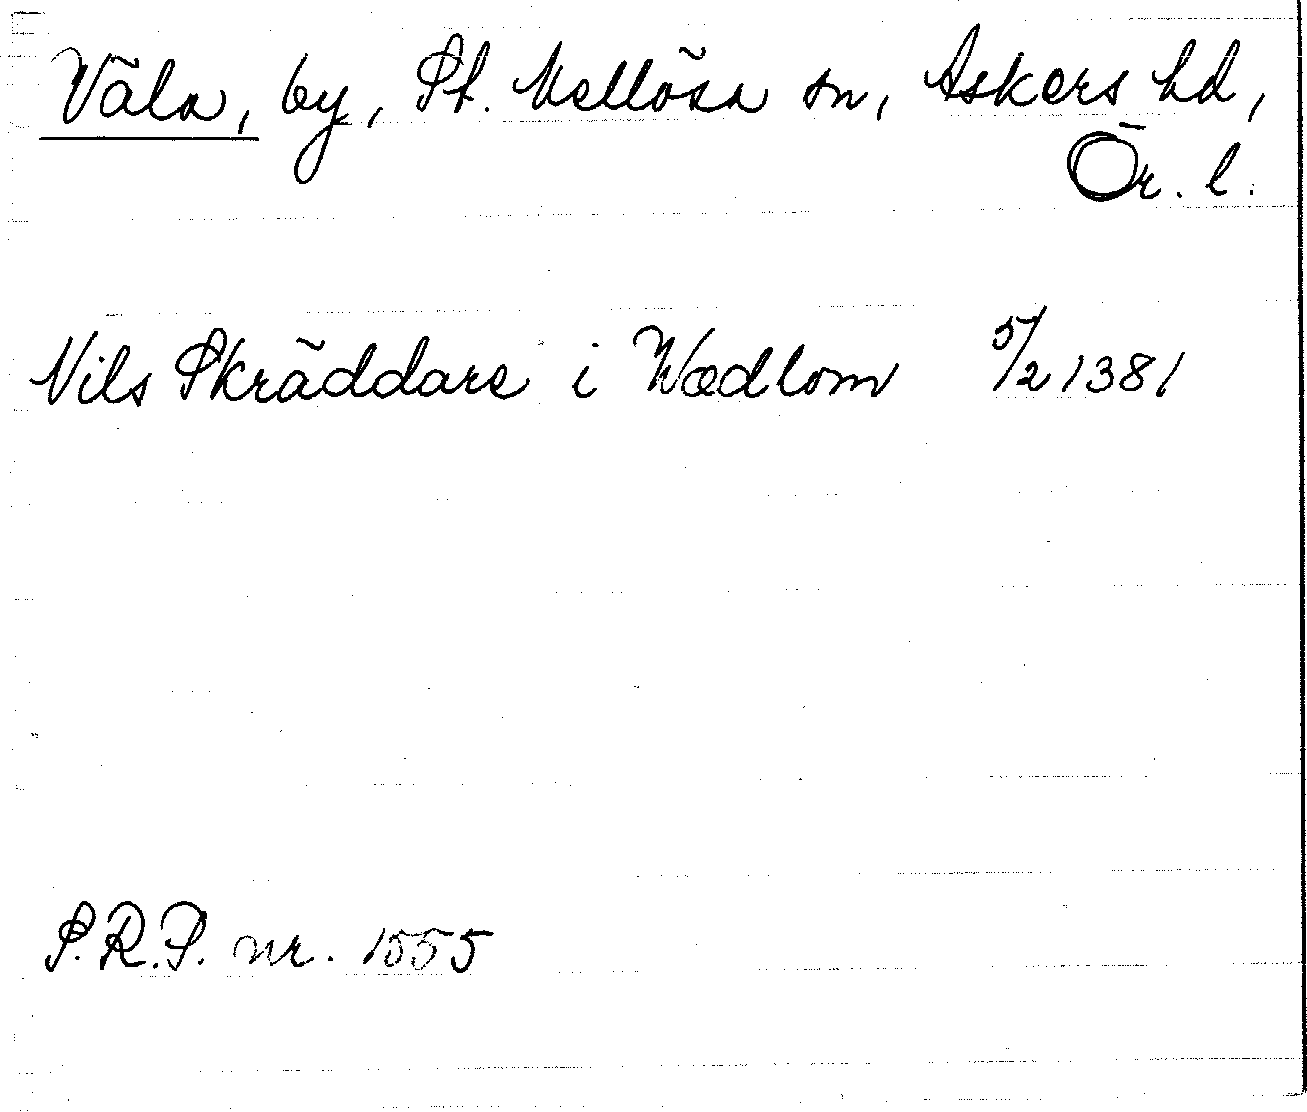 Väla, by, St. Mellösa sn, Askers hd,
Ör. l.
Nils Skräddare i Wædlom 5/2 1381
S.R.P. nr. 1555